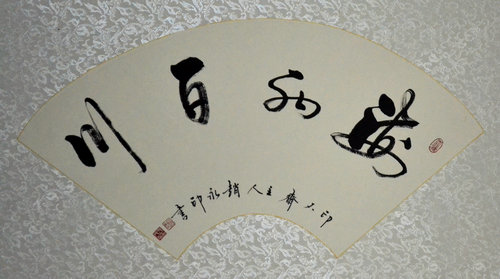 海納百川
印齋主人趙永印書